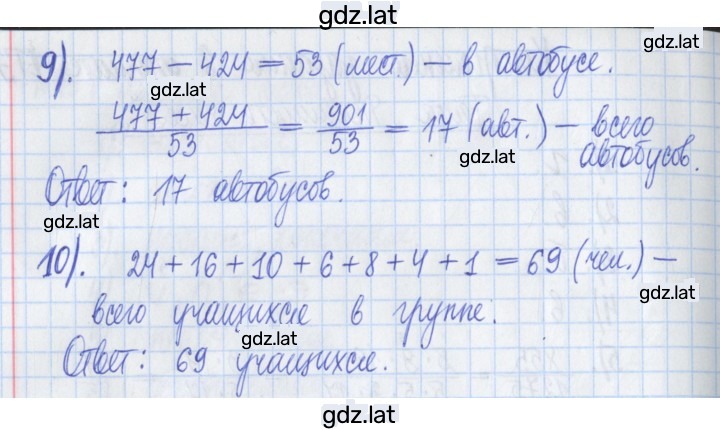 gdz.lat
gdz.lat
9). 477 – 424 = 53 (мест.) – в автобусе.
gdz.lat
477 + 424 / 53 = 901 / 53 = 17 (авт.) – всего автобусов.
gdz.lat
Ответ: 17 автобусов.
gdz.lat
10). 24 + 16 + 10 + 6 + 8 + 4 + 1 = 69 (чел.) –
gdz.lat
всего учащихся в группе.
gdz.lat
Ответ: 69 учащихся.
gdz.lat